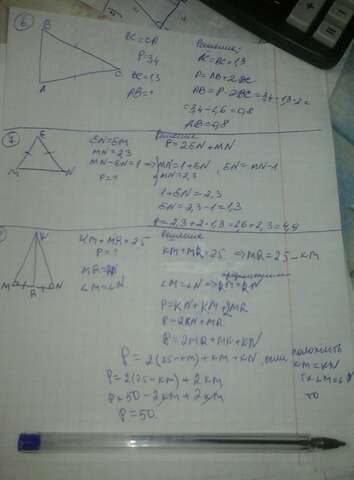 6
B
BC=CA
Решение:
P=3,4
BC=AC=1,3
BC=1,3
P=AB+2BC
AB=?
AB=P-2BC=3,4-1,3·2=
=3,4-2,6=0,8
AB=0,8
A
C
7
E
EN=EM
Решение
P=2EN+MN
MN=2,3
MN-EN=1 => MN=1+EN, EN=MN-1
MN=2,3
P=?
M
N
1+EN=2,3
EN=2,3-1=1,3
P=2,3+2·1,3=2,6+2,3=4,9
K
KM+MR=25
Решение
P=?
KM+MR=25 => MR=25-KM
∠M=∠N
∠M=∠N =>
M
R
N
P=KN+KM+2MR
P=2MR+MK+KN
P=2(25-KM)+KM+KN, если положить
KM=KN
P=2(25-KM)+2KM
т.к ∠M=∠N
P=50-2KM+2KM
то
P=50.